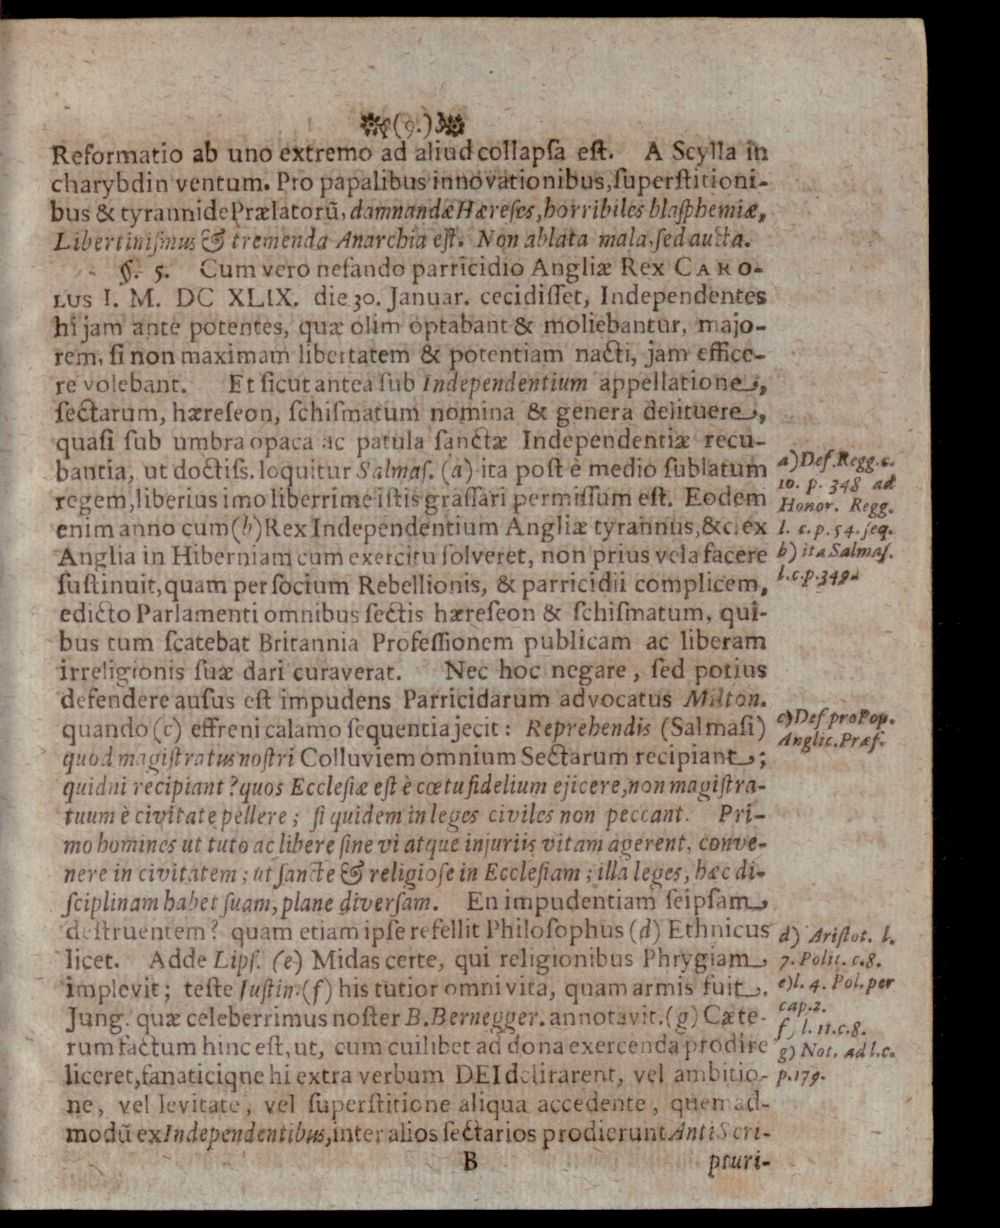 (9.)
Reformatio ab uno extremo ad aliud collapſa eſt. A Scylla in
charybdin ventum. Pro papalibus innovationibus, ſuperſtitioni-
bus & tyrannide Prælatorũ, damnandæ Hæreſes, horribiles blaſphemiæ,
Libertiniſmus & tremenda Anarchia eſt. Non ablata mala, ſed aucta.
§. 5. Cum vero nefando parricidio Angliæ Rex CARO-
LUS I. M. DC XLIX. die 30. Januar. cecidiſſet, Independentes
hi jam ante potentes, quæ olim optabant & moliebantur, majo-
rem, ſi non maximam libertatem & potentiam nacti, jam effice-
re volebant. Et ſicut antea ſub Independentium appellatione,
ſectarum, hæreſeon, ſchiſmatum nomina & genera delituere,
quaſi ſub umbra opaca ac patula ſanctæ Independentiæ recu-
bantia, ut doctiſs. loquitur Salmaſ. (a) ita poſt è medio ſublatum
regem, liberius imo liberrime iſtis graſſari permiſſum eſt. Eodem
enim anno cum (b) Rex Independentium Angliæ tyrannus, &c. ex
Anglia in Hiberniam cum exercitu ſolveret, non prius vela facere
ſuſtinuit, quam per ſocium Rebellionis, & parricidii complicem,
edicto Parlamenti omnibus ſectis hæreſeon & ſchiſmatum, qui-
bus tum ſcatebat Britannia Profeſſionem publicam ac liberam
irreligionis ſuæ dari curaverat. Nec hoc negare, ſed potius
defendere auſus eſt impudens Parricidarum advocatus Milton.
quando (c) effreni calamo ſequentia jecit: Reprehendis (Salmaſi)
quod magiſtratus noſtri Colluviem omnium Sectarum recipiant;
quidni recipiant? quos Eccleſiæ eſt è cœtu fidelium ejicere, non magiſtra-
tuum è civitate pellere; ſi quidem in leges civiles non peccant. Pri-
mo homines ut tuto ac libere ſine vi atque injuriis vitam agerent, conve-
nere in civitatem; ut ſancte & religioſe in Eccleſiam; illa leges, hæc di-
ſciplinam habet ſuam, plane diverſam. En impudentiam ſeipſam
deſtruentem? quam etiam ipſe refellit Philoſophus (d) Ethnicus
licet. Adde Lipſ. (e) Midas certe, qui religionibus Phrygiam
implevit; teſte Juſtin. (f) his tutior omni vita, quam armis fuit.
Jung. quæ celeberrimus noſter B. Bernegger. annotavit. (g) Cæte-
rum factum hinc eſt, ut, cum cuilibet ad dona exercenda prodire
liceret, fanaticique hi extra verbum DEI delirarent, vel ambitio-
ne, vel levitate, vel ſuperſtitione aliqua accedente, quemad-
modũ ex Independentibus, inter alios ſectarios prodierunt AntiScri-
B
pturi-
a) Def. Regg. c.
10. p. 348 ad
Honor. Regg.
l. c. p. 54. ſeq.
b) ita Salmaſ.
l. c. p. 349.
c) Def pro Pop.
Anglic. Præf.
d) Ariſtot. l.
7. Polit. c. 8.
e) l. 4. Pol. per
cap. 2.
f, l. 11. c. 8.
g) Not. ad l. c.
p. 179.